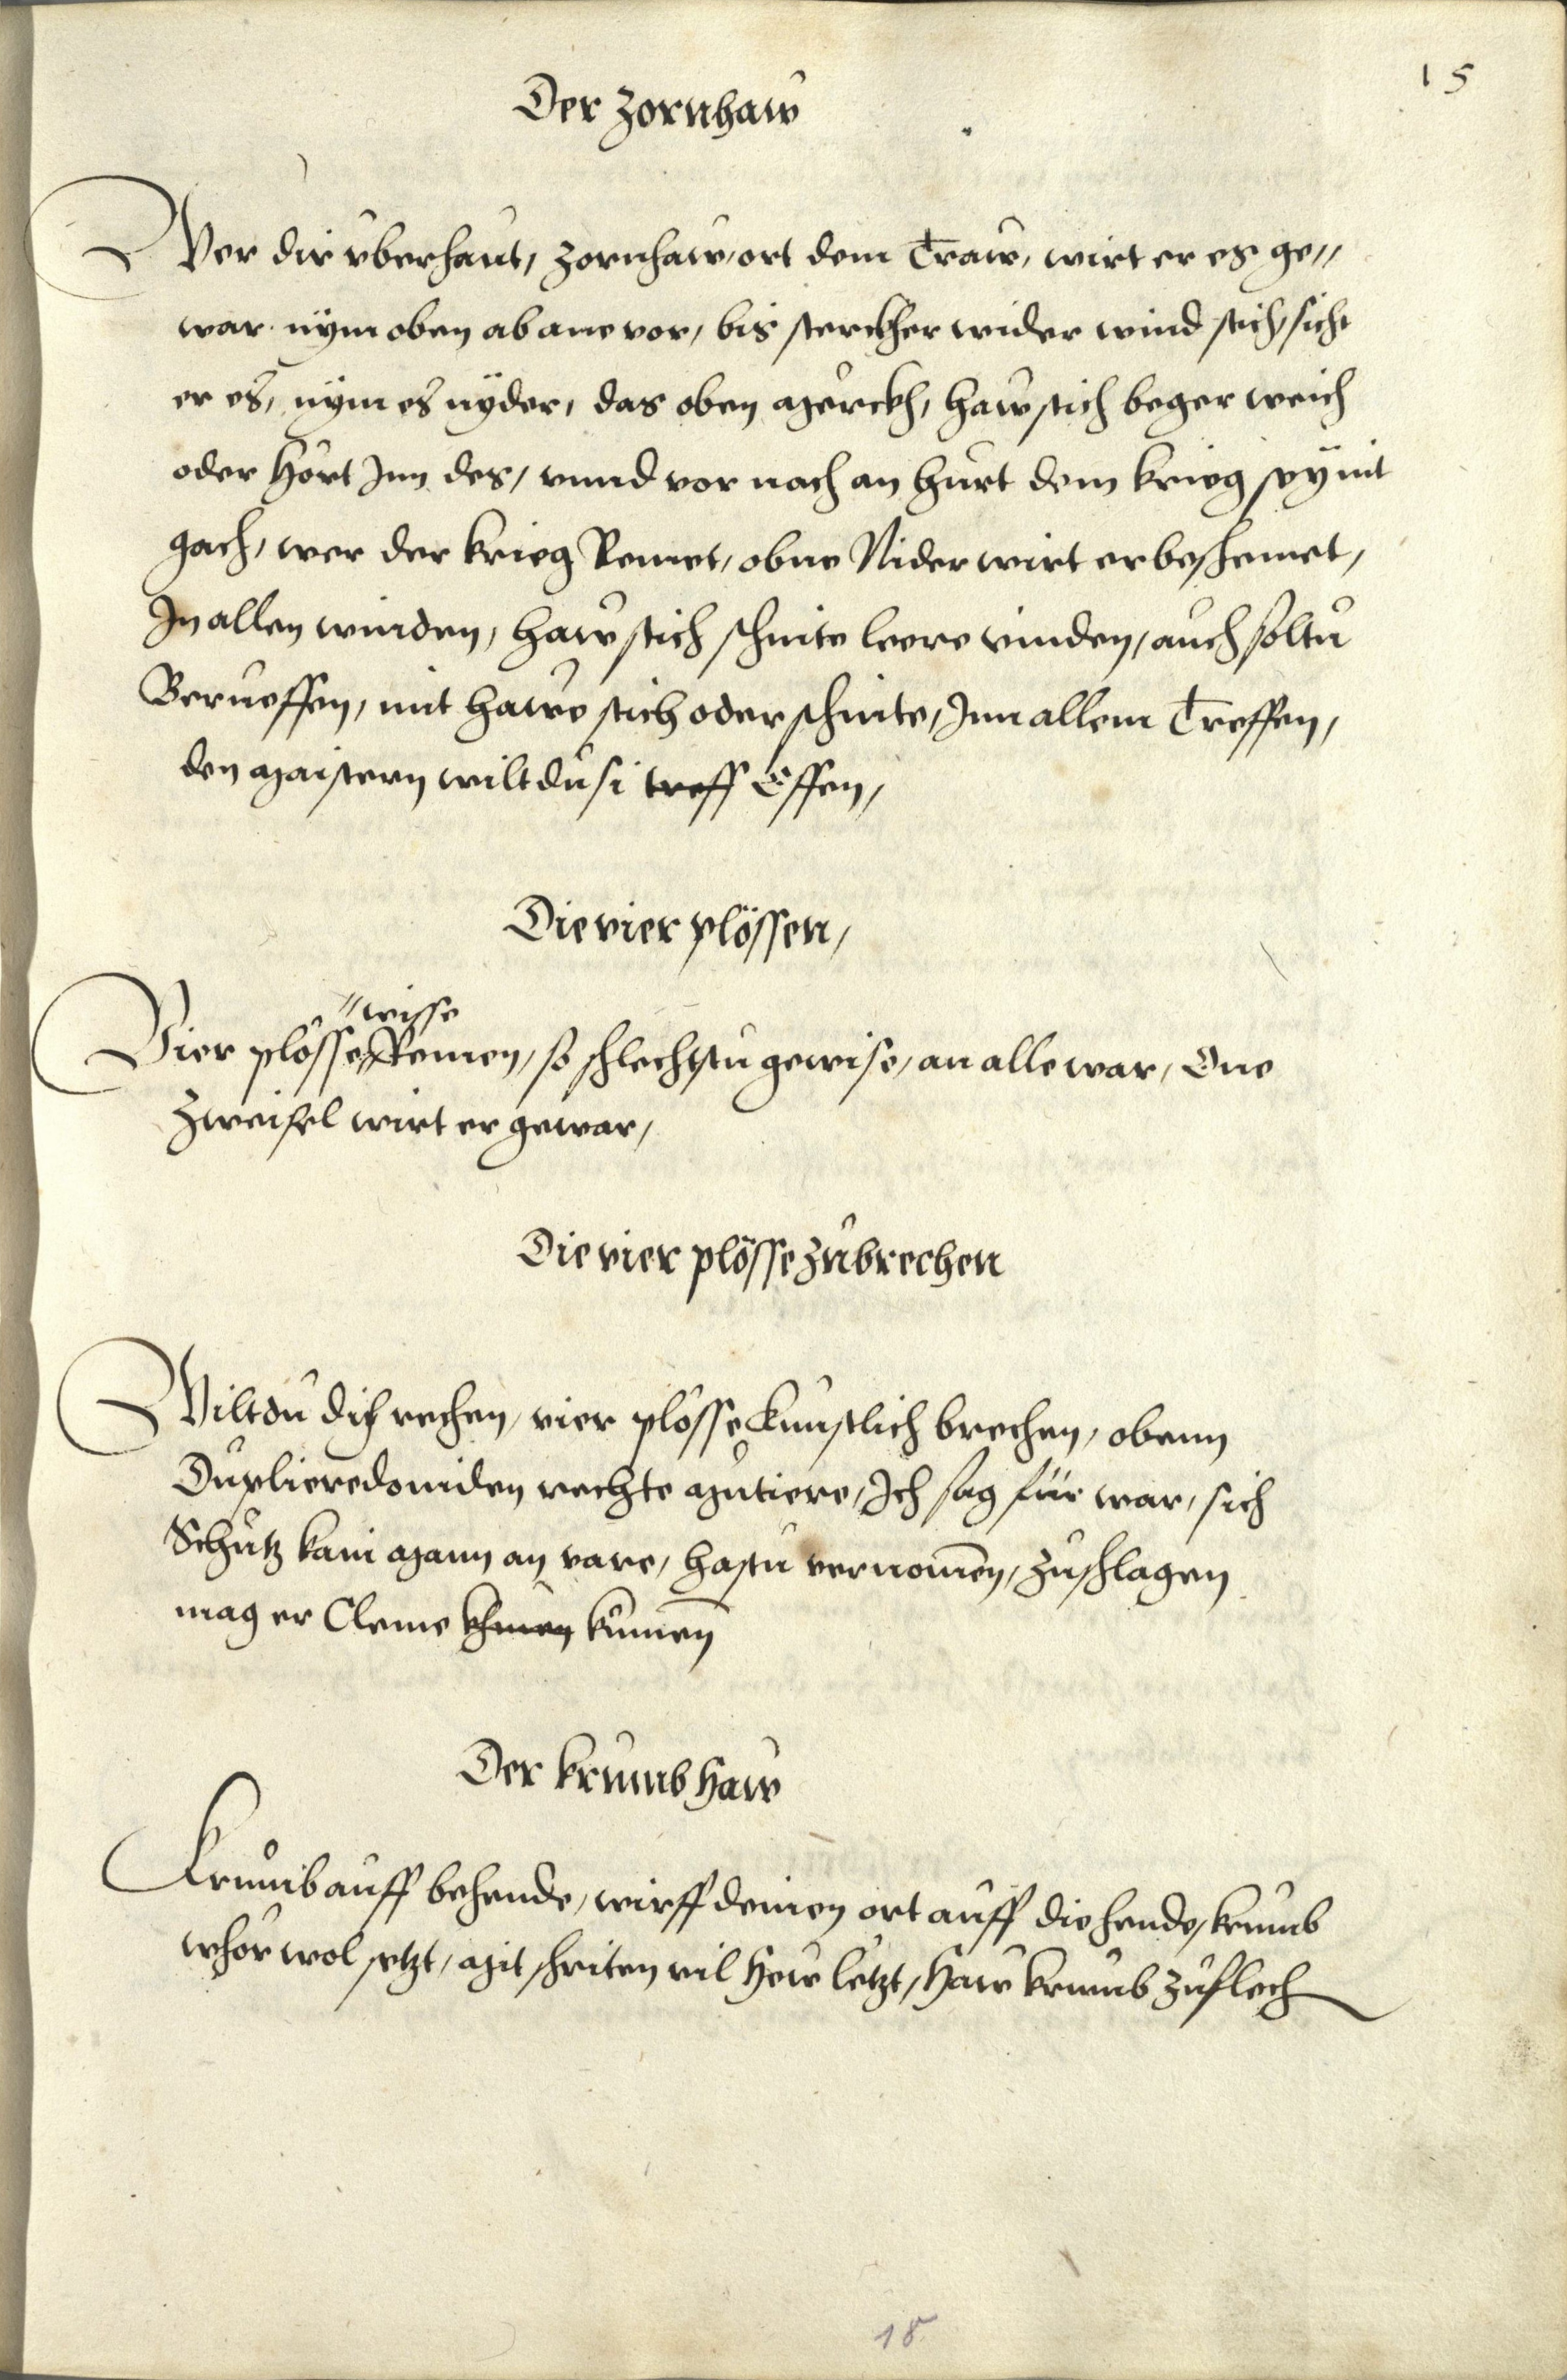 15
Der Zornhaw
Wer dir vberhaut, Zornhaw, ort dem Traw, wirt er es ge„
war nÿm oben ab ane vor, bis sterckher wider wind stich, sicht
er es, nÿm es nÿder, das oben merckh, haw stich beger weich
oder hort Inn des, vnnd vor nach an hurt dem krieg seÿ nit
gach, wer der krieg Remet, obne Nider wirt er beschemet,
In allen winden, haw stich schnite leere vinden, auch soltu
Berueffen, mit hawe stich oder schnite, Inn allem Treffen,
den maistern wilt du si treff Effen,
Die vier plössen,
„wisse
Vier plösse Remen, so schlechstu gewise, an alle war, One
Zweifel wirt er gewar,
Die vier plösse zubrechen
Wiltdu dich rechen, vier plosse kunstlich brechen, obenn
Duplieredoniden rechte mutiere, Ich sag für war, sich
Schutz kain mann an vare, hastu vernomen, zu schlagen
mag er Cleine khmen kumen
Der krumb Haw
Krumb auff behende, wirff deinen ort auff die hende, krumb
wher wol setzt, mit schriten vil Hew letzt, Haw krumb zuflech
18